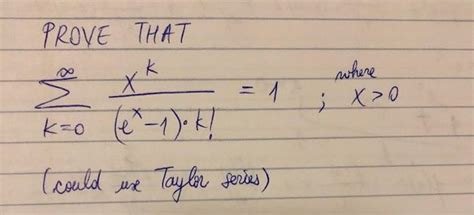 PROVE THAT
∞ Σ k=0 x^k / (e^x-1)·k! = 1 ; where x>0
(could use Taylor series)